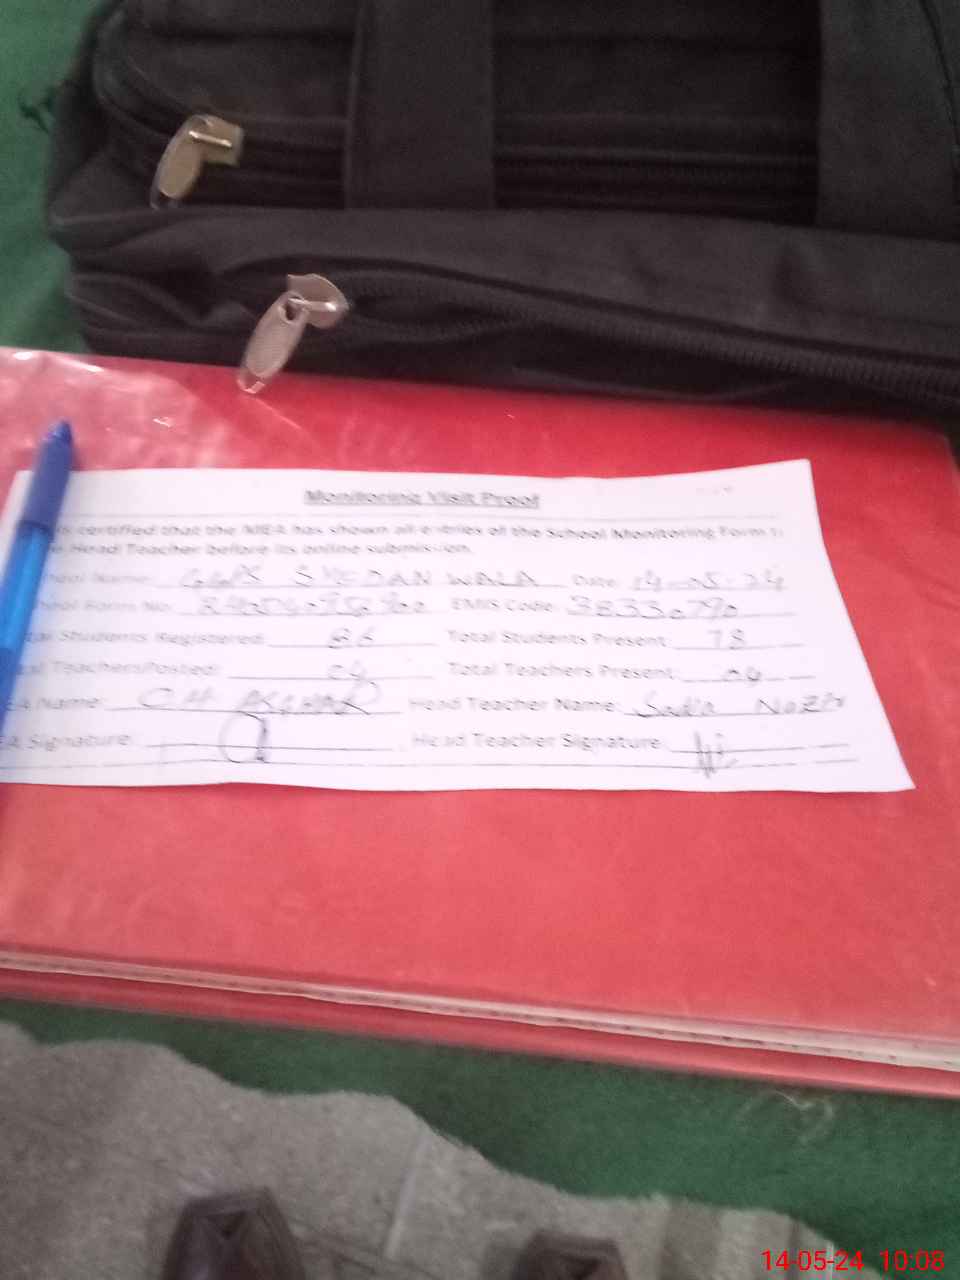 Monitoring Visit Proof
is certified that the MEA has shown all entries of the School Monitoring Form to
Head Teacher before its online submission.
School Name: WALA Date: 14-05-24
School Form No: EMIS Code: 38330790
Total Students Registered: 86 Total Students Present: 78
Total Teachers Posted: 04 Total Teachers Present: 04
MEA Name: CH ASGHAR Head Teacher Name: Sadia NaZir
MEA Signature: Head Teacher Signature:
14-05-24 10:08